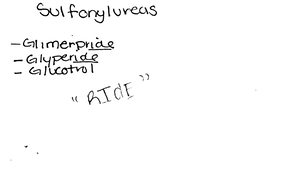 Sulfonylureas
- Glimerpride
- Glyperide
- Glucotrol
"RIdE"